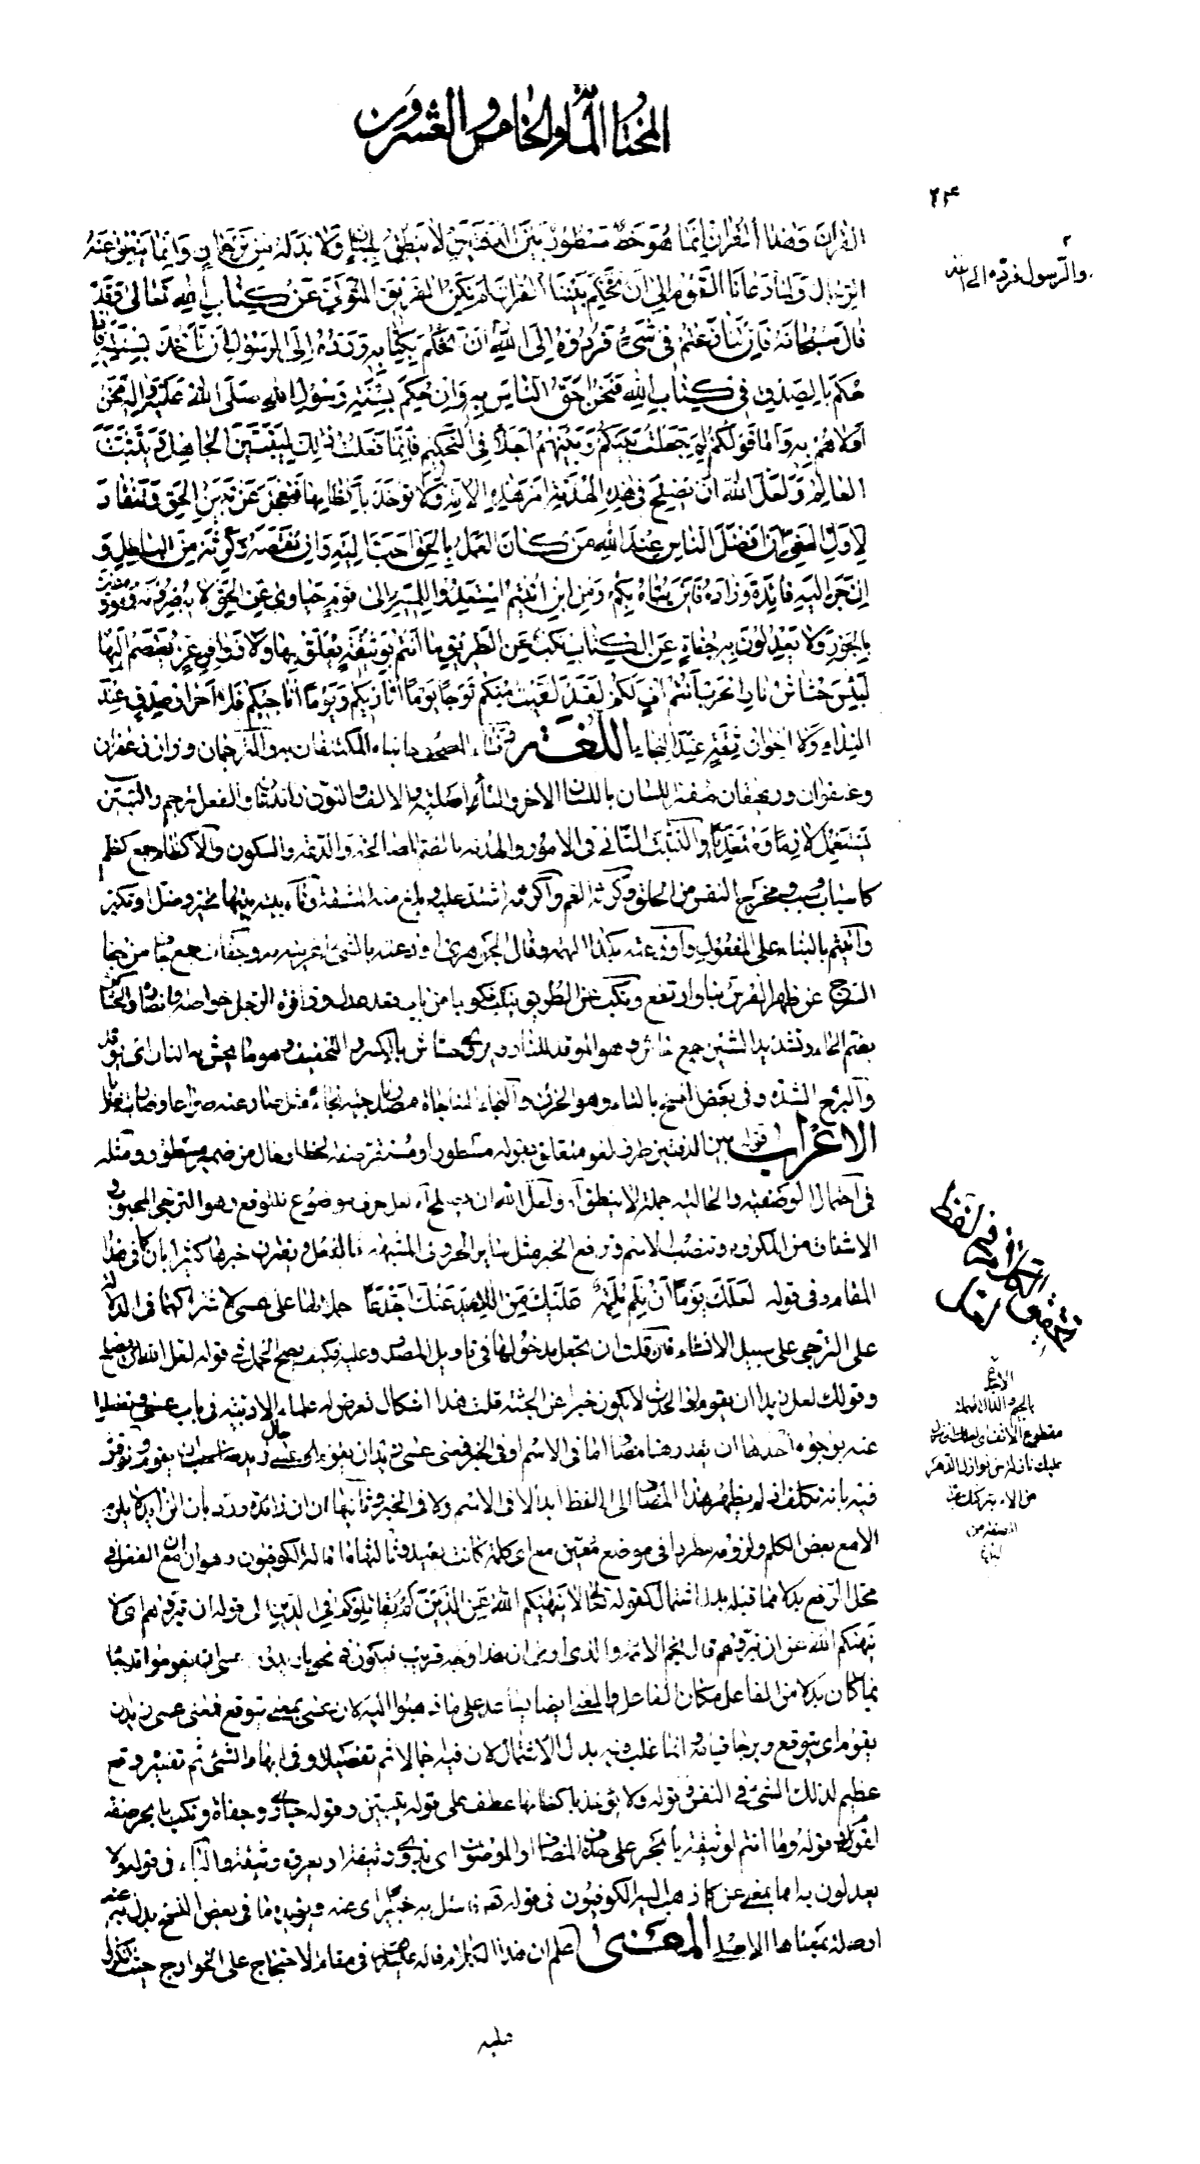 المختار المأة والخامس والعشرون
٢٤
القرآن وهذا القرآن إنما هو خط مسطور بين الدفتين لا ينطق بلسان ولا بد له من ترجمان وإنما ينطق عنه
الرجال ولما دعانا القوم إلى أن نحكم بيننا القرآن لم نكن الفريق المتولي عن كتاب الله تعالى وقد
قال سبحانه فإن تنازعتم في شيء فردوه إلى الله أن نحكم بكتابه ورده إلى الرسول أن نأخذ بسنته فإذا
حكم بالصدق في كتاب الله فنحن أحق الناس به وإن حكم بسنة رسول الله صلى الله عليه وآله فنحن
أولاهم به وأما قولكم لم جعلت بينكم وبينهم أجلا في التحكيم فإنما فعلت ذلك ليتبين الجاهل ويتثبت
العالم ولعل الله أن يصلح في هذه الهدنة أمر هذه الأمة ولا تؤخذ بأكظامها فتعجل عن تبين الحق وتنقاد
لأول الغي إن أفضل الناس عند الله من كان العمل بالحق أحب إليه وإن نقصه وكرثه من الباطل و
إن جر إليه فائدة وزاده فأين يتاه بكم ومن أين أتيتم استعدوا للمسير إلى قوم حيارى عن الحق لا يبصرونه وموزعين
بالجور ولا يعدلون به جفاة عن الكتاب نكب عن الطريق ما أنتم بوثيقة يعلق بها ولا زوافر عز يعتصم إليها
لبئس حشاش نار الحرب أنتم أف لكم لقد لقيت منكم ترحا يوما أناديكم ويوما أناجيكم فلا أحرار صدق عند
النداء ولا إخوان ثقة عند النجاء اللغة دفتا المصحف جانباه المكتنفان به والترجمان وزان زعفران
وعنفوان وريهقان مفسر اللسان باللسان الآخر والتاء أصلية والألف والنون زائدتان والفعل ترجم والتبين
يستعمل لازما ومتعديا والتثبت التأني في الأمور والهدنة بالضم المصالحة والدعة والسكون والأكظام جمع كظم
كأسباب وسبب مخرج النفس من الحلق وكرثه الغم وأكرثه اشتد عليه وبلغ منه المشقة وتاه
وأتيتم بالبناء على المفعول وأوزعته بكذا ألهمته وقال الجوهري أوزعته بالشيء أغريته به وجفاة جمع جاف من جفا
السرج عن ظهر الفرس نبا وارتفع ونكب عن الطريق ينكب نكوبا من باب قعد عدل وزافرة الرجل خواصه وأنصاره والحشاش
بضم الحاء وتشديد الشين جمع حاش وهو الموقد للنار ويروى حشاش بالكسر والتخفيف وهو ما يحش به النار أي يوقد
والبرح الشدة وفي بعض النسخ بالتاء وهو الحزن والنجاء المناجاة مصدر ناجيته نجاء مثل
الإعراب قوله بين الدفتين ظرف لغو متعلق بقوله مسطور أو مستقر صفة لخط أو حال من ضمير مسطور ومثله
في احتمال الوصفية والحالية جملة لا ينطق آه ولعل الله أن يصلح آه لعل حرف موضوع للتوقع وهو الترجي للمحبوب و
الإشفاق من المكروه وتنصب الاسم وترفع الخبر مثل سائر الحروف المشبهة بالفعل ويقترن خبرها كثيرا بأن كما في هذا
المقام وفي قوله لعلك يوما أن تلم ملمة عليك من اللاء يدعنك أجدعا حملا لها على عسى لاشتراكهما في الدلالة
على الترجي على سبيل الإنشاء فإن قلت أن تجعل مدخولها في تأويل المصدر وعليه فكيف يصح الحمل في قوله لعل الله أن يصلح
وقولك لعل زيدا أن يقوم إذ الحدث لا يكون خبرا عن الجثة قلت هذا إشكال تعرض له علماء الأدبية في باب عسى
عنه بوجوه أحدها أن يقدر هنا مضاف إما في الاسم أو في الخبر فمعنى عسى زيد أن يقوم
فيه بأنه تكلف إذ لم يظهر هذا المضاف إلى اللفظ أبدا لا في الاسم ولا في الخبر وثانيها أن أن زائدة ورد بأن الزائد لا يلزم
إلا مع بعض الكلم ولزومه مطردا في موضع معين مع أي كلمة كانت بعيد وثالثها ما قاله الكوفيون وهو أن أن مع الفعل في
محل الرفع بدلا مما قبله بدل اشتمال كقوله تعالى لا ينهيكم الله عن الذين لم يقاتلوكم في الدين إلى قوله أن تبروهم أي لا
ينهيكم الله عن أن تبروهم قال نجم الأئمة والذي أرى أن هذا وجه قريب فيكون في نحو
بما كان بدلا من الفاعل مكان الفاعل والمعنى أيضا يساعد على ما ذهبوا إليه لأن عسى بمعنى يتوقع فمعنى عسى زيد أن
يقوم أي يتوقع ويرجى قيامه وإنما غلب فيه بدل الاشتمال لأن فيه إجمالا ثم تفصيلا وفي إبهام الشيء ثم تفسيره وقع
عظيم لذلك الشيء في النفس قوله ولا تؤخذ بأكظامها عطف على قوله يتبين وقوله حيارى وجفاة ونكب بالجر صفة
لقوم قوله وما أنتم بوثيقة بالجر على حذف المضاف أو الموصوف أي بذوي وثيقة أو بعروة وثيقة والباء في قوله ولا
يعدلون به إما بمعنى عن كما ذهب إليه الكوفيون في قوله تعالى فاسئل به خبيرا أي عنه ويؤيده ما في بعض النسخ بدل به عنه
أو صلة بمعناها الأصلي المعنى اعلم أن هذا الكلام قاله عليه السلام في مقام الاحتجاج على الخوارج حيث أنكروا
عليه
والرسول فرده إلى الله
تحقيق الكلام في لفظ
لعل
الأجدع
بالجيم والدال المهملة
مقطوع الأنف أي لعلك
عليك نازلة من نوازل الدهر
من اللاء يتركنك